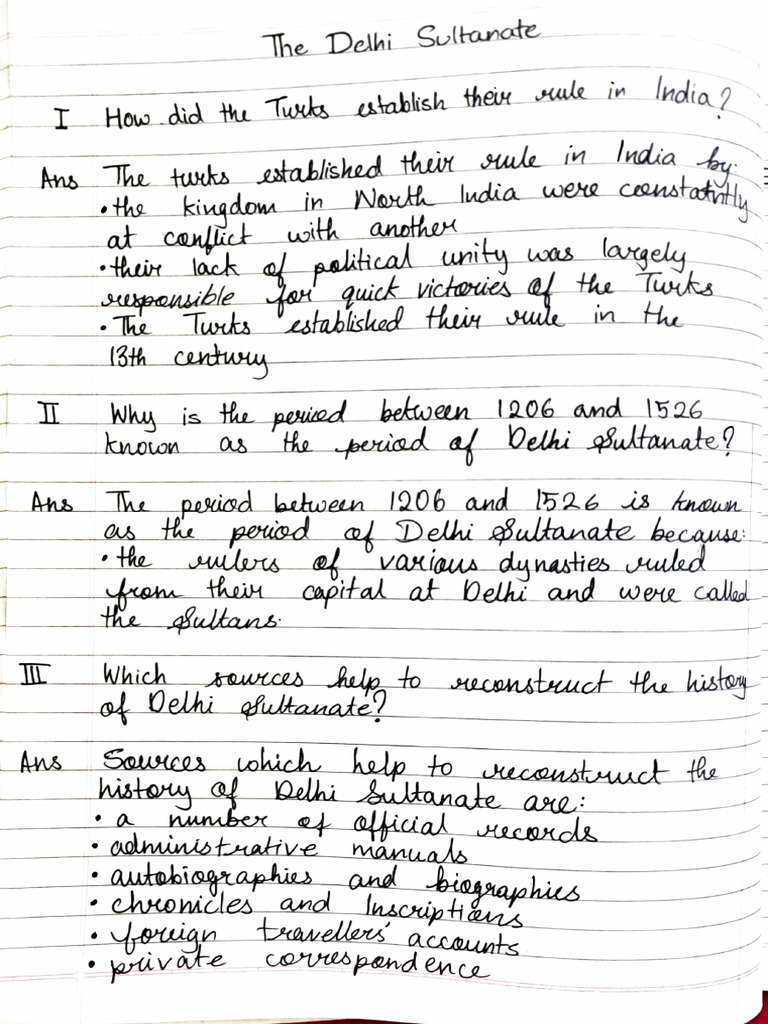 The Delhi Sultanate
I How did the Turks establish their rule in India?
Ans The turks established their rule in India by:
• the kingdom in North India were constatntly
at conflict with another
• their lack of political unity was largely
responsible for quick victories of the Turks
• The Turks established their rule in the
13th century
II Why is the period between 1206 and 1526
known as the period of Delhi Sultanate?
Ans The period between 1206 and 1526 is known
as the period of Delhi Sultanate because:
• the rulers of various dynasties ruled
from their capital at Delhi and were called
the Sultans.
III Which sources help to reconstruct the history
of Delhi Sultanate?
Ans Sources which help to reconstruct the
history of Delhi Sultanate are:
• a number of official records
• administrative manuals
• autobiographies and biographies
• chronicles and Inscriptions
• foreign travellers' accounts
• private correspondence